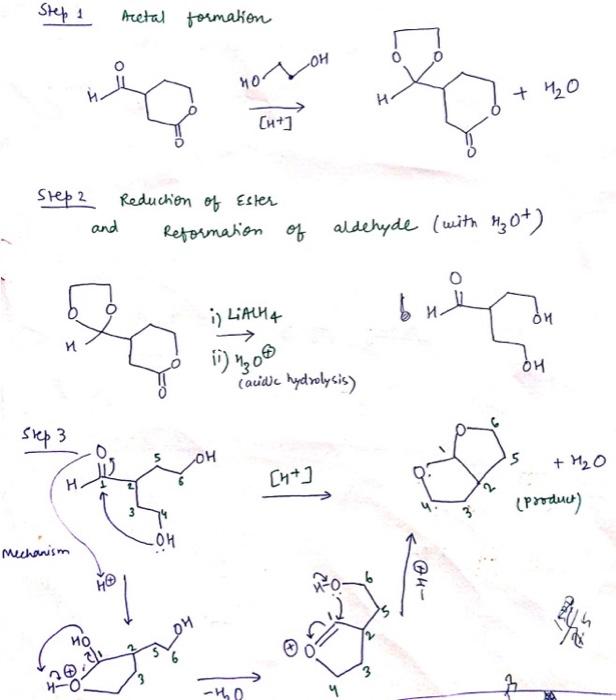 Step 1 Acetal formation
O
H
O
O
HO OH
[H+]
O O
H
O
O
+ H2O
Step 2 Reduction of Ester
and Reformation of aldehyde (with H3O+)
O O
H
O
O
i) LiAlH4
ii) H3O⊕
(acidic hydrolysis)
O
H
OH
OH
Step 3
O
H 1 2 3 4 5 6
OH
OH
[H+]
O 6
1 5
O 2
4 3
+ H2O
(product)
Mechanism
H⊕
HO
H-O⊕ 1 2 3 5 6
OH
-H2O
H-O 6
1 5
⊕ O 2
3
4
-H⊕